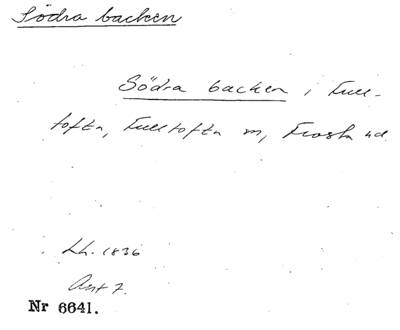 Södra backen
Södra backen i Full-
tofta, Fulltofta sn, Frosta hd
Lh. 1836
Akt 7.
Nr 6641.